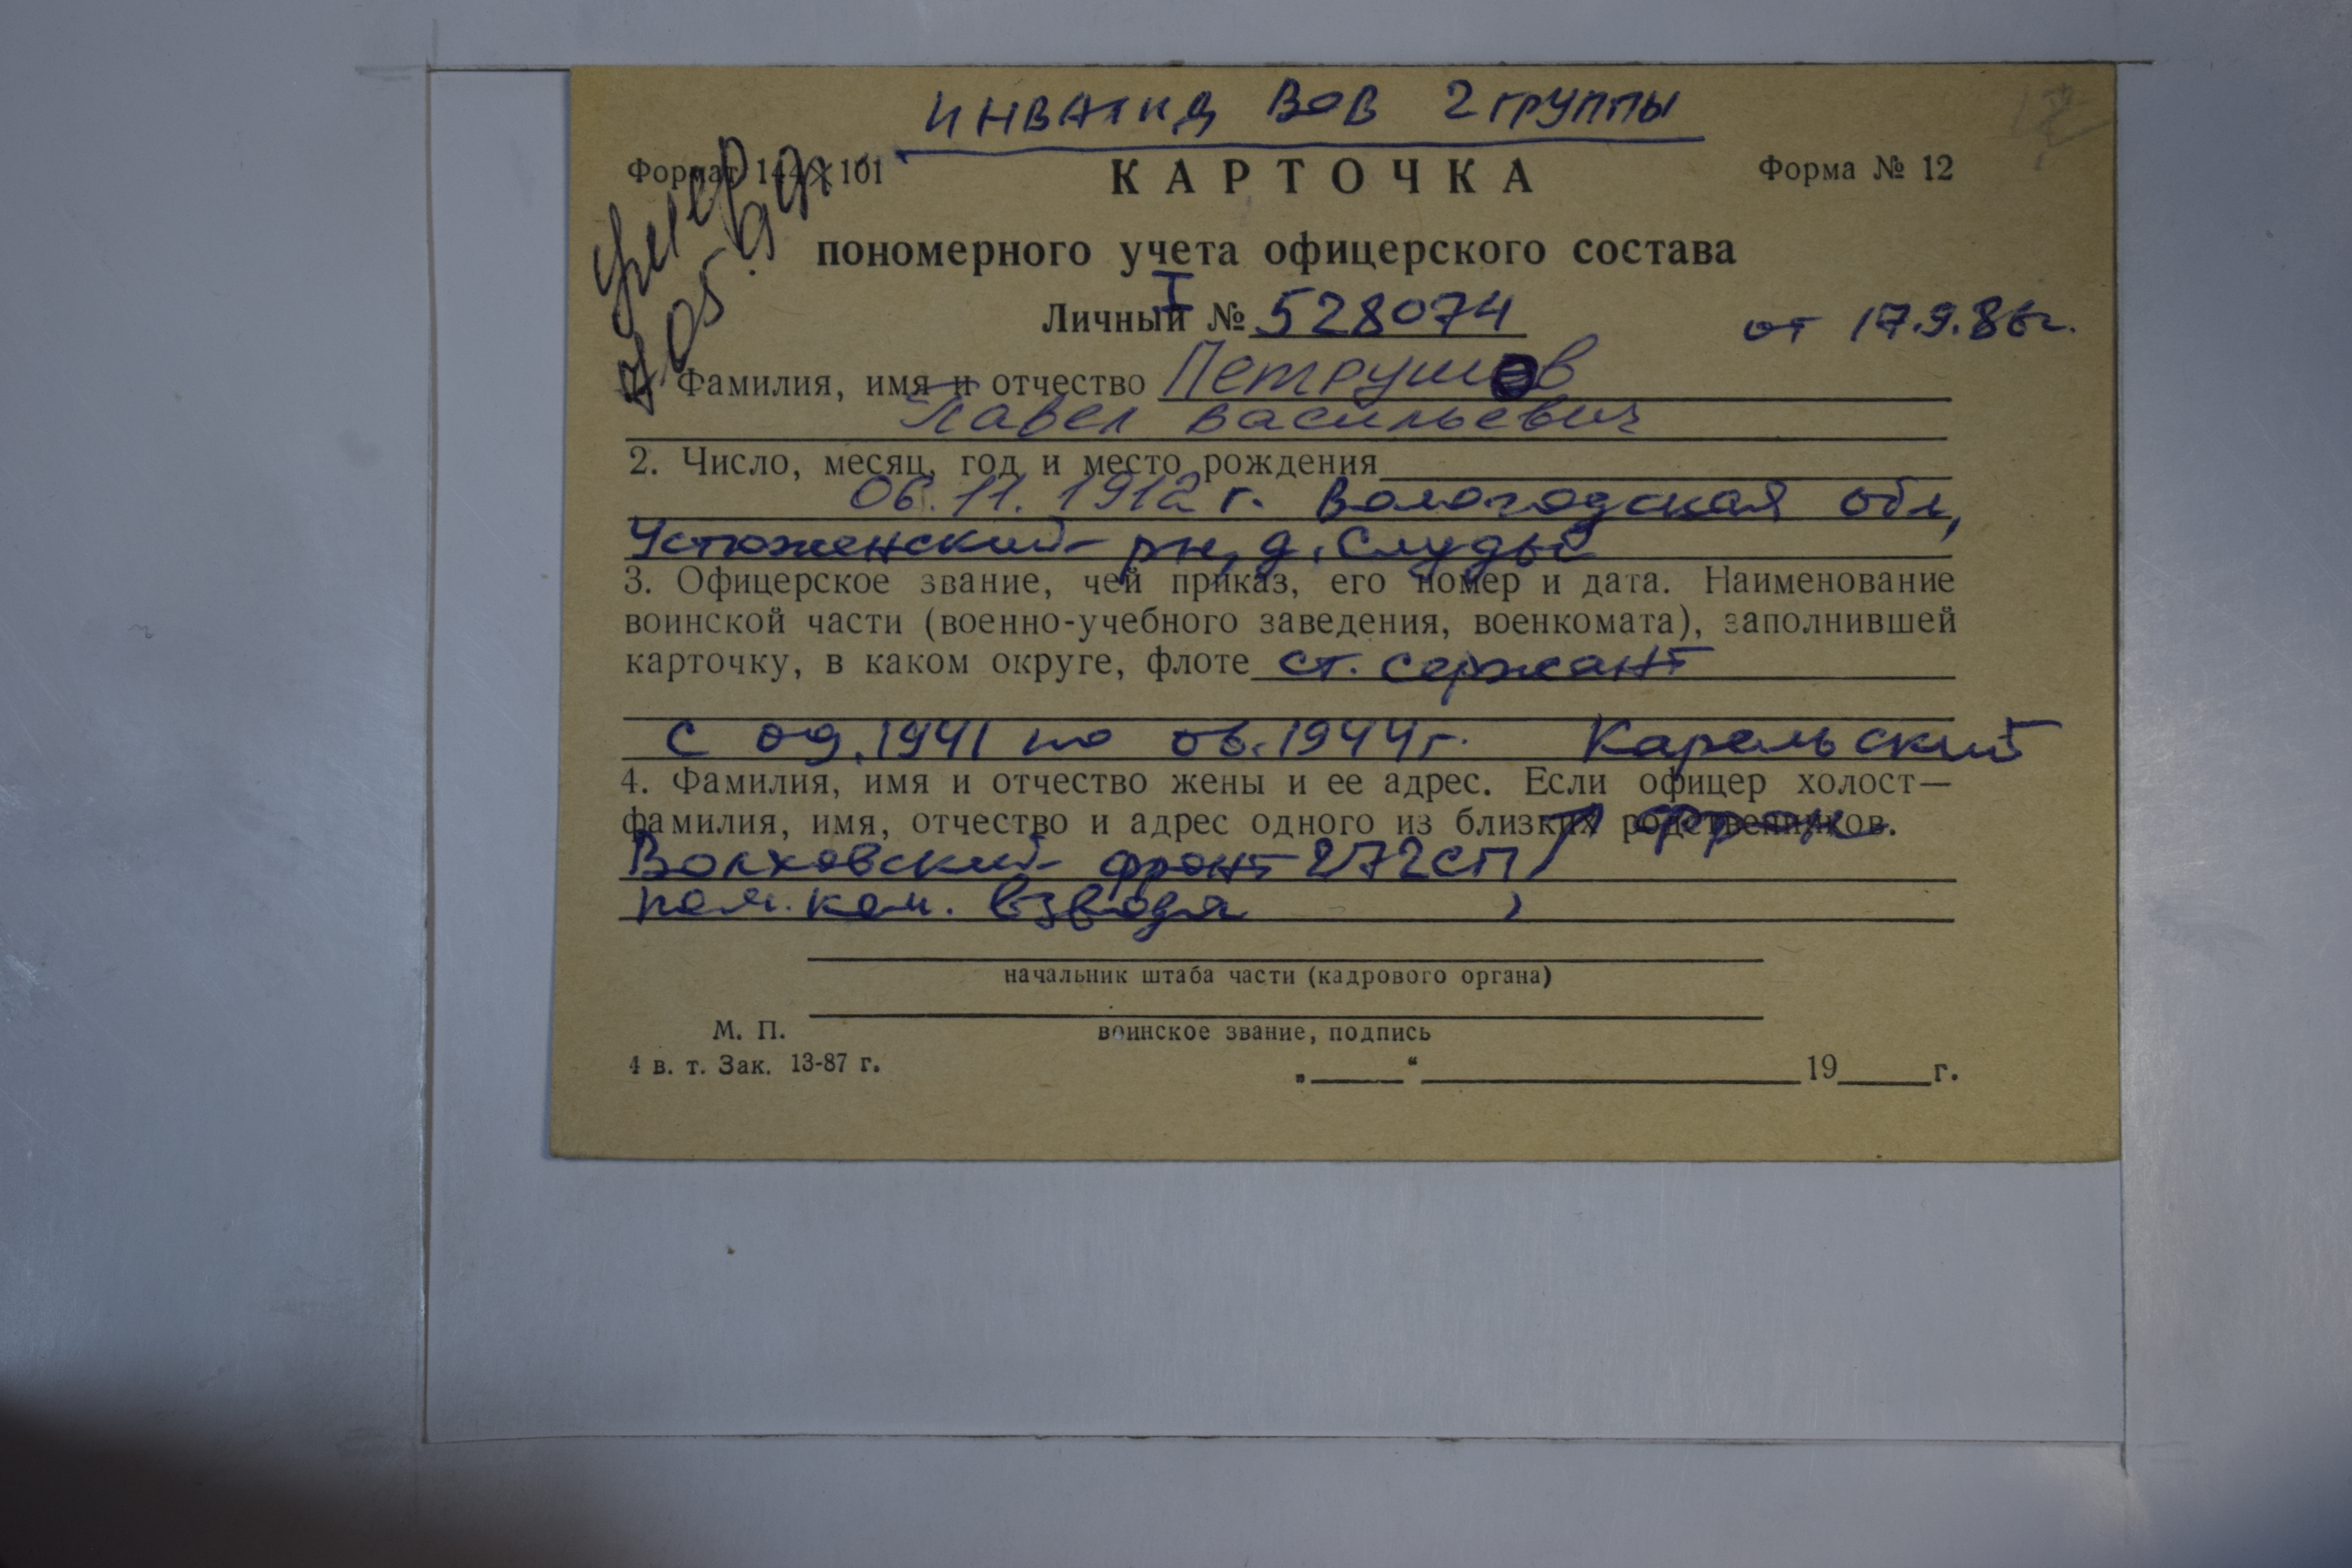 ИНВАЛИД ВОВ 2 ГРУППЫ
Формат 144×101
КАРТОЧКА
Форма № 12
умер
7.05.99г.
пономерного учета офицерского состава
Личный № I 528074 от 17.9.86г.
Фамилия, имя и отчество Петрушов
Павел Васильевич
2. Число, месяц, год и место рождения
06.11.1912 г. Вологодская обл,
Устюженский рн, д. Слуды
3. Офицерское звание, чей приказ, его номер и дата. Наименование
воинской части (военно-учебного заведения, военкомата), заполнившей
карточку, в каком округе, флоте ст. сержант
с 09.1941 по 06.1944г. Карельский
4. Фамилия, имя и отчество жены и ее адрес. Если офицер холост—
фамилия, имя, отчество и адрес одного из близких родственников.
Волховский фронт 272СП
пом. ком. взвода
начальник штаба части (кадрового органа)
М. П.
воинское звание, подпись
4 в. т. Зак. 13-87 г.
„ “ 19 г.